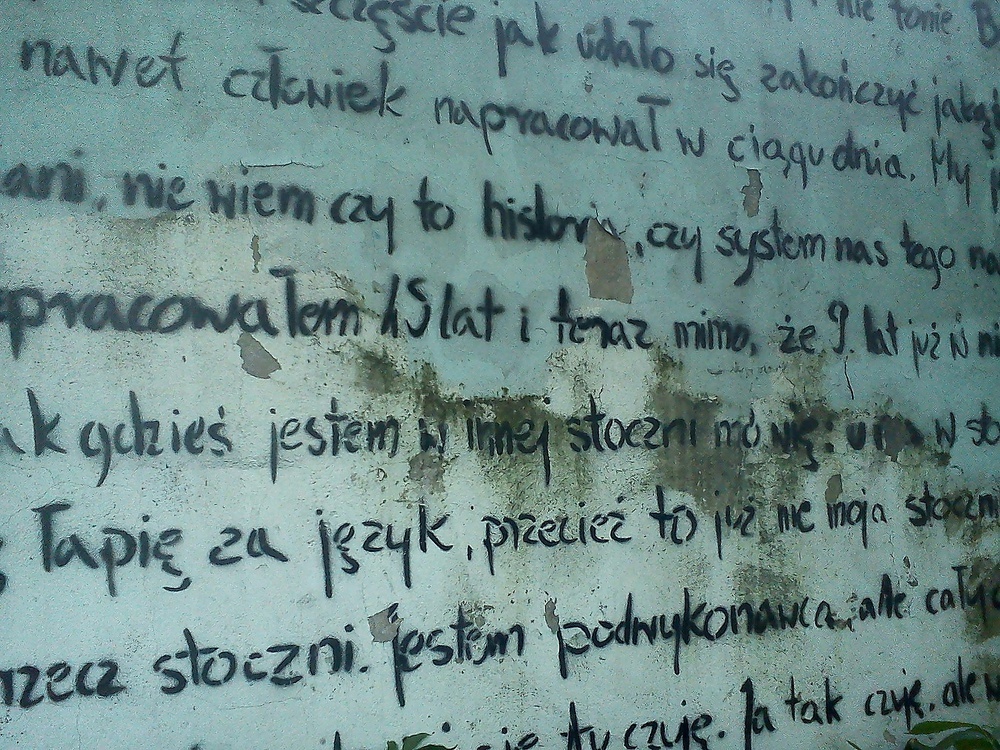 szczęście jak udało się zakończyć jakąś
nie tonie. B
nawet człowiek napracował w ciągu dnia. My
ani, nie wiem czy to historia, czy system nas tego na
pracowałem 15 lat i teraz mimo, że 9 lat już w ni
ak gdzieś jestem w innej stoczni mówię: u nas w sto
łapię za język, przecież to już nie moja stoczni
rzecz stoczni. Jestem podwykonawcą, ale całyc
się tu czuję. Ja tak czuję, ale w